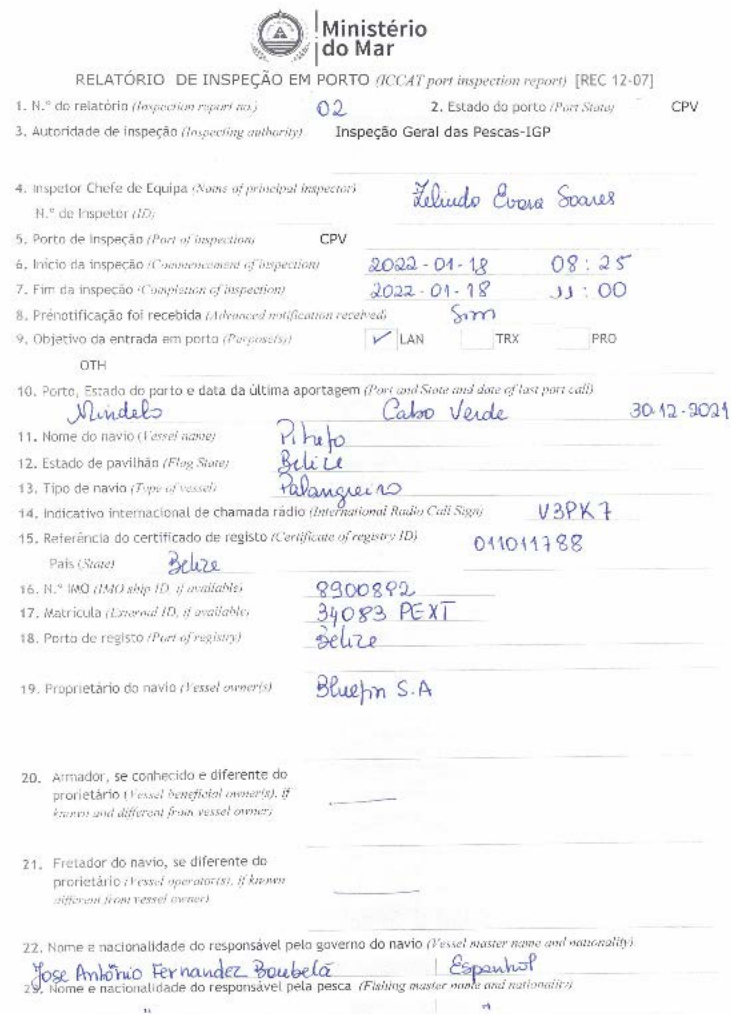 Ministério
do Mar
RELATÓRIO DE INSPEÇÃO EM PORTO (ICCAT port inspection report) [REC 12-07]
1. N.º do relatório (Inspection report no.) 02 2. Estado do porto (Port State) CPV
3. Autoridade de inspeção (Inspecting authority) Inspeção Geral das Pescas-IGP
4. Inspetor Chefe de Equipa (Name of principal inspector) Zelindo Soares
N.º de Inspetor (ID)
5. Porto de Inspeção (Port of inspection) CPV
6. Início da inspeção (Commencement of inspection) 2022-01-18 08:25
7. Fim da inspeção (Completion of inspection) 2022-01-18 11:00
8. Prénotificação foi recebida (Advanced notification received) Sim
9. Objetivo da entrada em porto (Purpose(s)) ✓ LAN TRX PRO
OTH
10. Porto, Estado do porto e data da última aportagem (Port and State and date of last port call)
Mindelo Cabo Verde 30-12-2021
11. Nome do navio (Vessel name)
12. Estado de pavilhão (Flag State) Belize
13. Tipo de navio (Type of vessel) Palangreiro
14. Indicativo internacional de chamada rádio (International Radio Call Sign) V3PK7
15. Referência do certificado de registo (Certificate of registry ID) 011011788
País (State) Belize
16. N.º IMO (IMO ship ID, if available) 8900892
17. Matrícula (External ID, if available) 34083 PEXT
18. Porto de registo (Port of registry) Belize
19. Proprietário do navio (Vessel owner(s)) Bluefin S.A
20. Armador, se conhecido e diferente do
prorietário (Vessel beneficial owner(s), if
known and different from vessel owner)
21. Fretador do navio, se diferente do
prorietário (Vessel operator(s), if known
different from vessel owner)
22. Nome e nacionalidade do responsável pelo governo do navio (Vessel master name and nationality)
Jose António Fernandez Boubetá Espanhol
23. Nome e nacionalidade do responsável pela pesca (Fishing master name and nationality)
" "